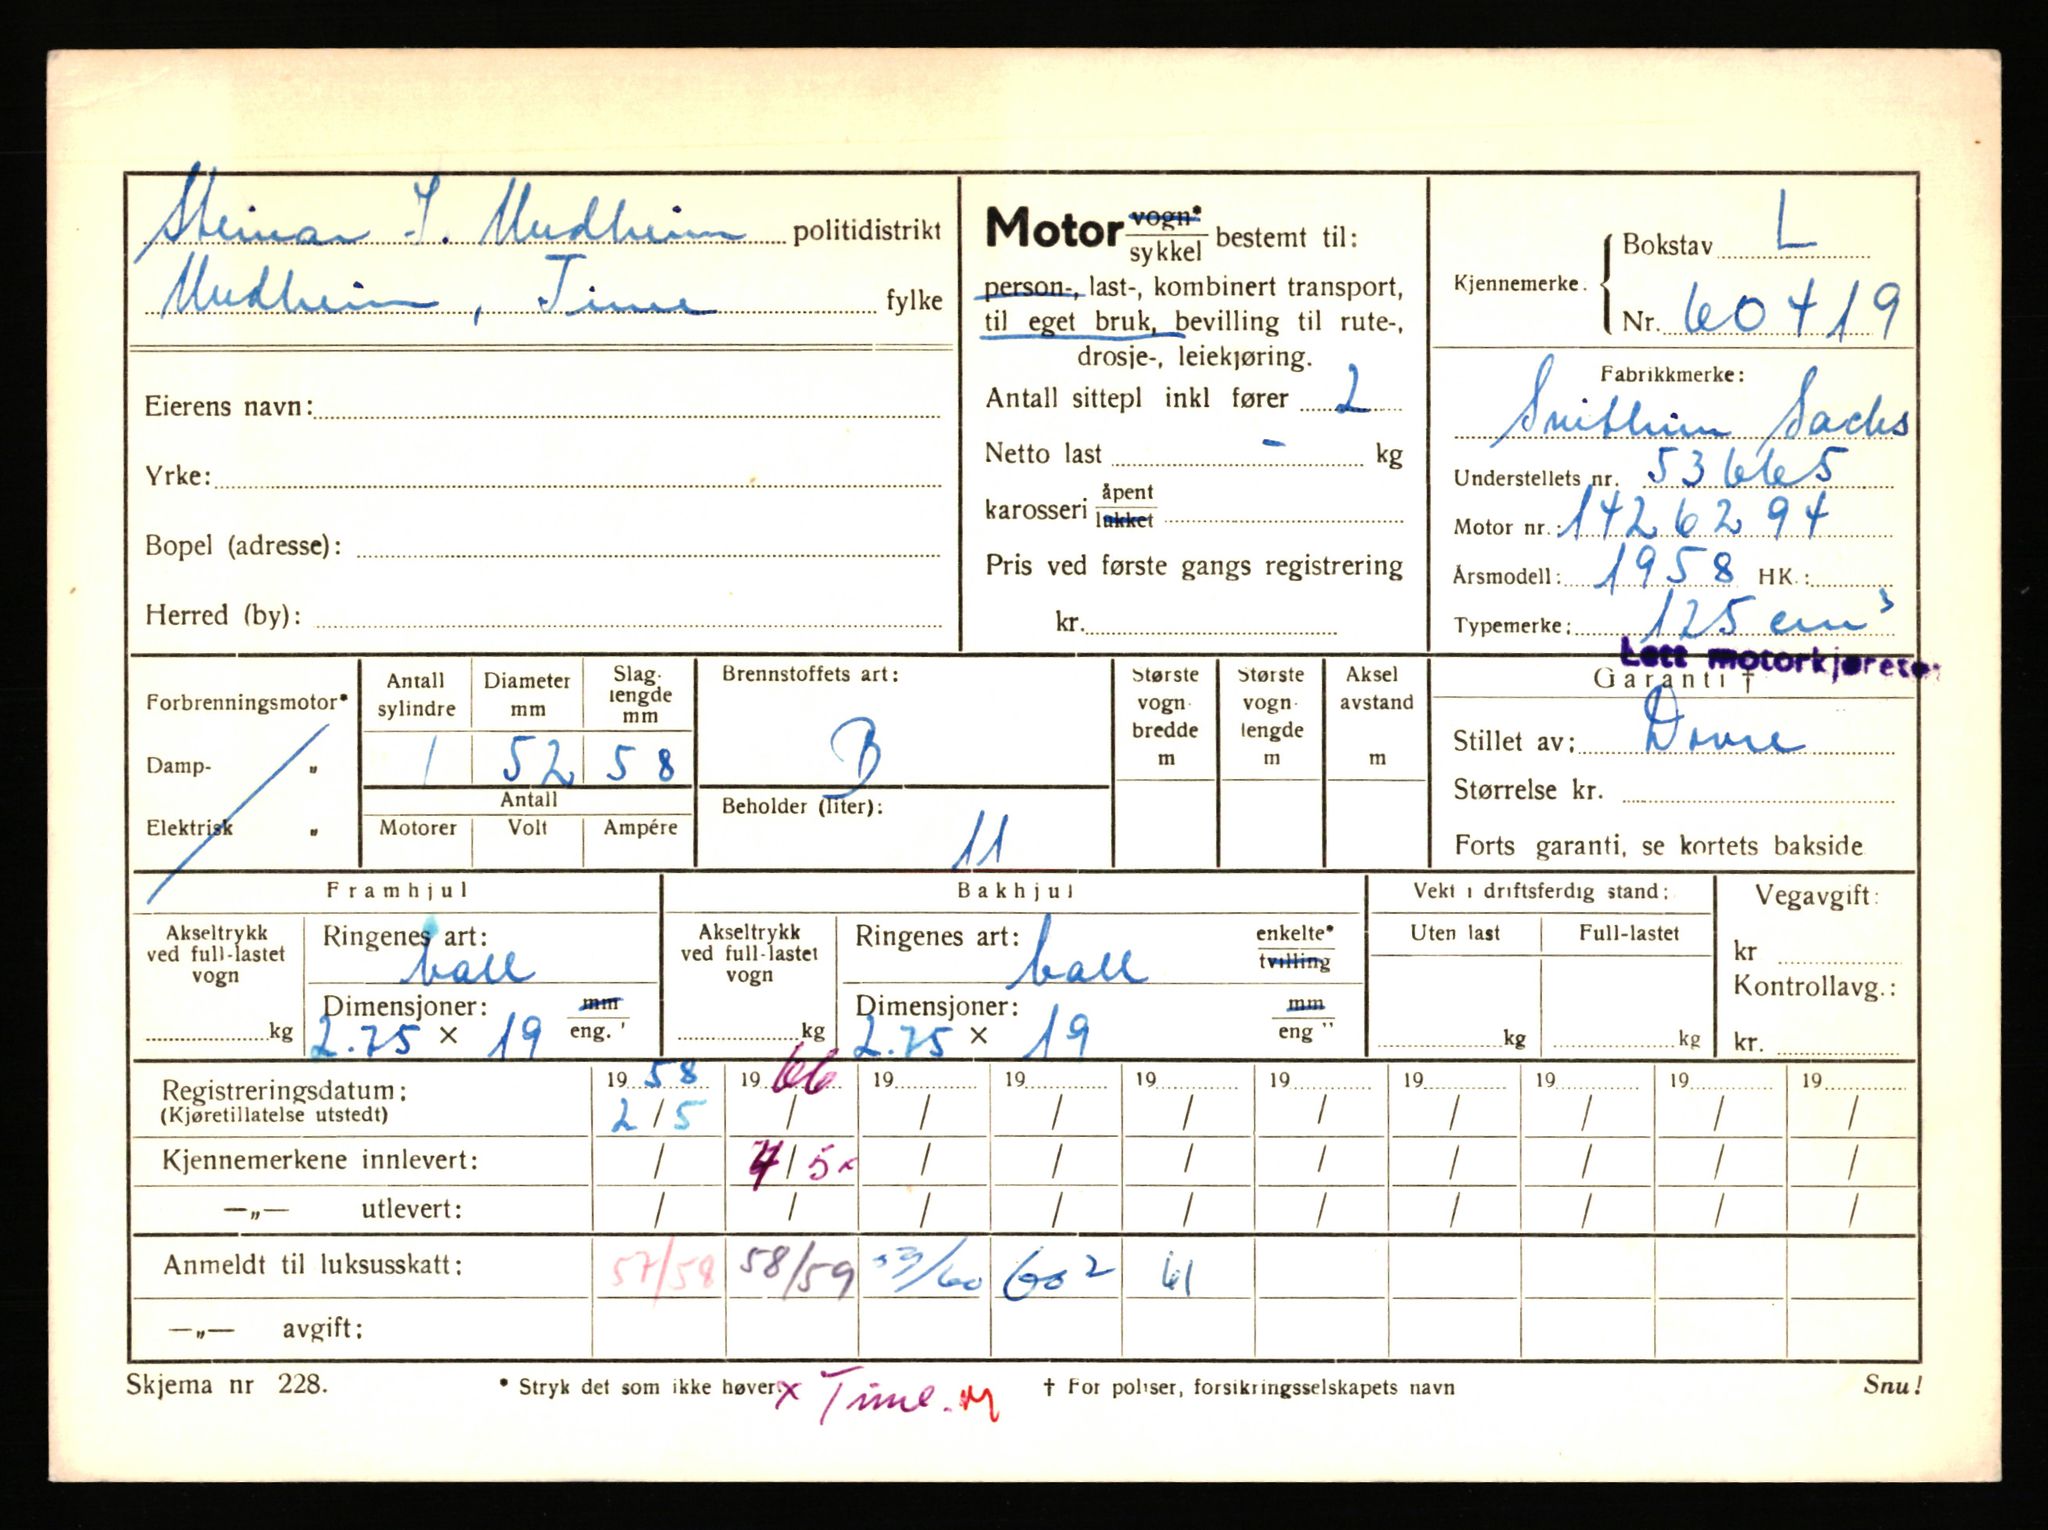 Steinar I. Undheim politidistrikt
Undheim, Time fylke
Eierens navn:
Yrke:
Bopel (adresse):
Herred (by):
Motor vogn* / sykkel bestemt til:
person-, last-, kombinert transport,
til eget bruk, bevilling til rute-,
drosje-, leiekjøring.
Antall sittepl inkl fører 2
Netto last - kg
karosseri åpent / lukket
Pris ved første gangs registrering
kr.
Kjennemerke. Bokstav L
Nr. 60419
Fabrikkmerke:
Svithun Sachs
Understellets nr. 53665
Motor nr.: 1426294
Årsmodell: 1958 HK.:
Typemerke: 125 cm³
Lett motorkjøretø.
Garanti †
Stillet av: Dovre
Størrelse kr.
Forts garanti, se kortets bakside
Forbrenningsmotor*
Damp- „
Elektrisk „
Antall sylindre 1
Diameter mm 52
Slag- lengde mm 58
Antall
Motorer Volt Ampére
Brennstoffets art:
B
Beholder (liter):
11
Største vogn- bredde m
Største vogn- lengde m
Aksel avstand m
Framhjul
Akseltrykk ved full-lastet vogn kg
Ringenes art: ball
Dimensjoner: mm / eng. '
2.75 x 19
Bakhjul
Akseltrykk ved full-lastet vogn kg
Ringenes art: ball enkelte* / tvilling
Dimensjoner: mm / eng "
2.75 x 19
Vekt i driftsferdig stand:
Uten last Full-lastet
kg kg
Vegavgift:
kr
Kontrollavg.:
kr.
Registreringsdatum: 19 58 19 66 19 19 19 19 19 19 19 19
(Kjøretillatelse utstedt) 2/5 / / / / / / / / /
Kjennemerkene innlevert: / 4/5x / / / / / / / /
—„— utlevert: / / / / / / / / / /
Anmeldt til luksusskatt: 57/58 58/59 59/60 60 2 61
—„— avgift:
Skjema nr 228. * Stryk det som ikke høver. x Time. † For poliser, forsikringsselskapets navn Snu!